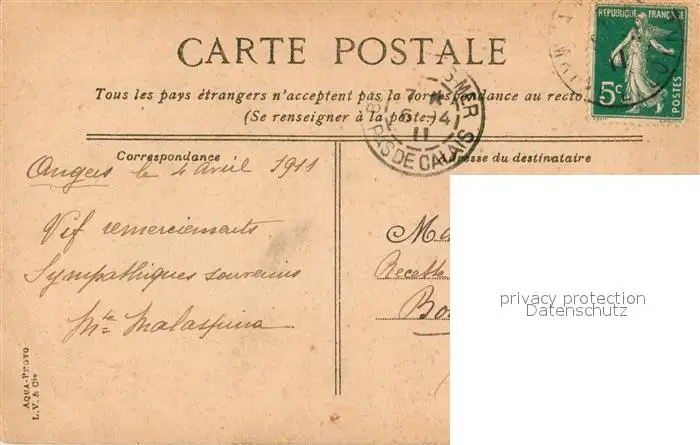 CARTE POSTALE
RÉPUBLIQUE FRANÇAISE
5c
POSTES
Tous les pays étrangers n'acceptent pas la correspondance au recto
(Se renseigner à la poste.)
OMER
7
6 -4
11
PAS DE CALAIS
Correspondance
Adresse du destinataire
Angers le 4 avril 1911
Vif remerciements
Sympathiques souvenirs
Mte Malaspina
Recette
privacy protection
Datenschutz
AQUA-PHOTO
L.V. & Cie